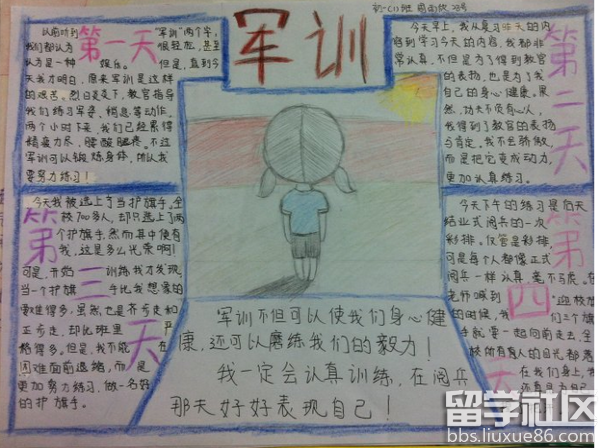 初一(1)班
军训
第一天
以前听到"军训"两个字,
我们都认为很轻松,甚至
认为是一种娱乐。但是,直到今
天我才明白,原来军训是这样
的艰苦。烈日炎炎下,教官指导
我们练习军姿,稍息等动作。
两个小时下来,我们已经累得
精疲力尽,腰酸腿疼。不过
军训可以锻炼身体,所以我
要努力练习!
第二天
今天早上,我从复习昨天的内
容到学习今天的内容,我都非
常认真,不但是为了得到教官
的表扬,也是为了我
自己的身心健康。果
然,功夫不负有心人,
我得到了教官的表扬
与肯定。我不会骄傲,
而是把它变成动力,
更加认真练习。
第三天
今天我被选上了当护旗手。全
校700多人,却只选上了两
个护旗手,然而其中便有
我,这是多么光荣啊!
可是,开始训练我才发现,
当一个护旗手比我想象的
要难得多。虽然也是齐步走和
正步走,却比班里严
格得多。但是,我不能在
困难面前退缩,而是
更加努力练习,做一名好
的护旗手。
第四天
今天下午的练习是后天
结业式阅兵的一次
彩排。仅管是彩排,
可是每个人都像正式
阅兵一样认真,毫不马虎。在
老师喊到"迎校旗
的时候,我们三个旗
手就要一起向前走去,全
校所有人的目光都
在我们身上,
军训不但可以使我们身心健
康,还可以磨练我们的毅力!
我一定会认真训练,在阅兵
那天好好表现自己!
留学社区
bbs.liuxue86.com